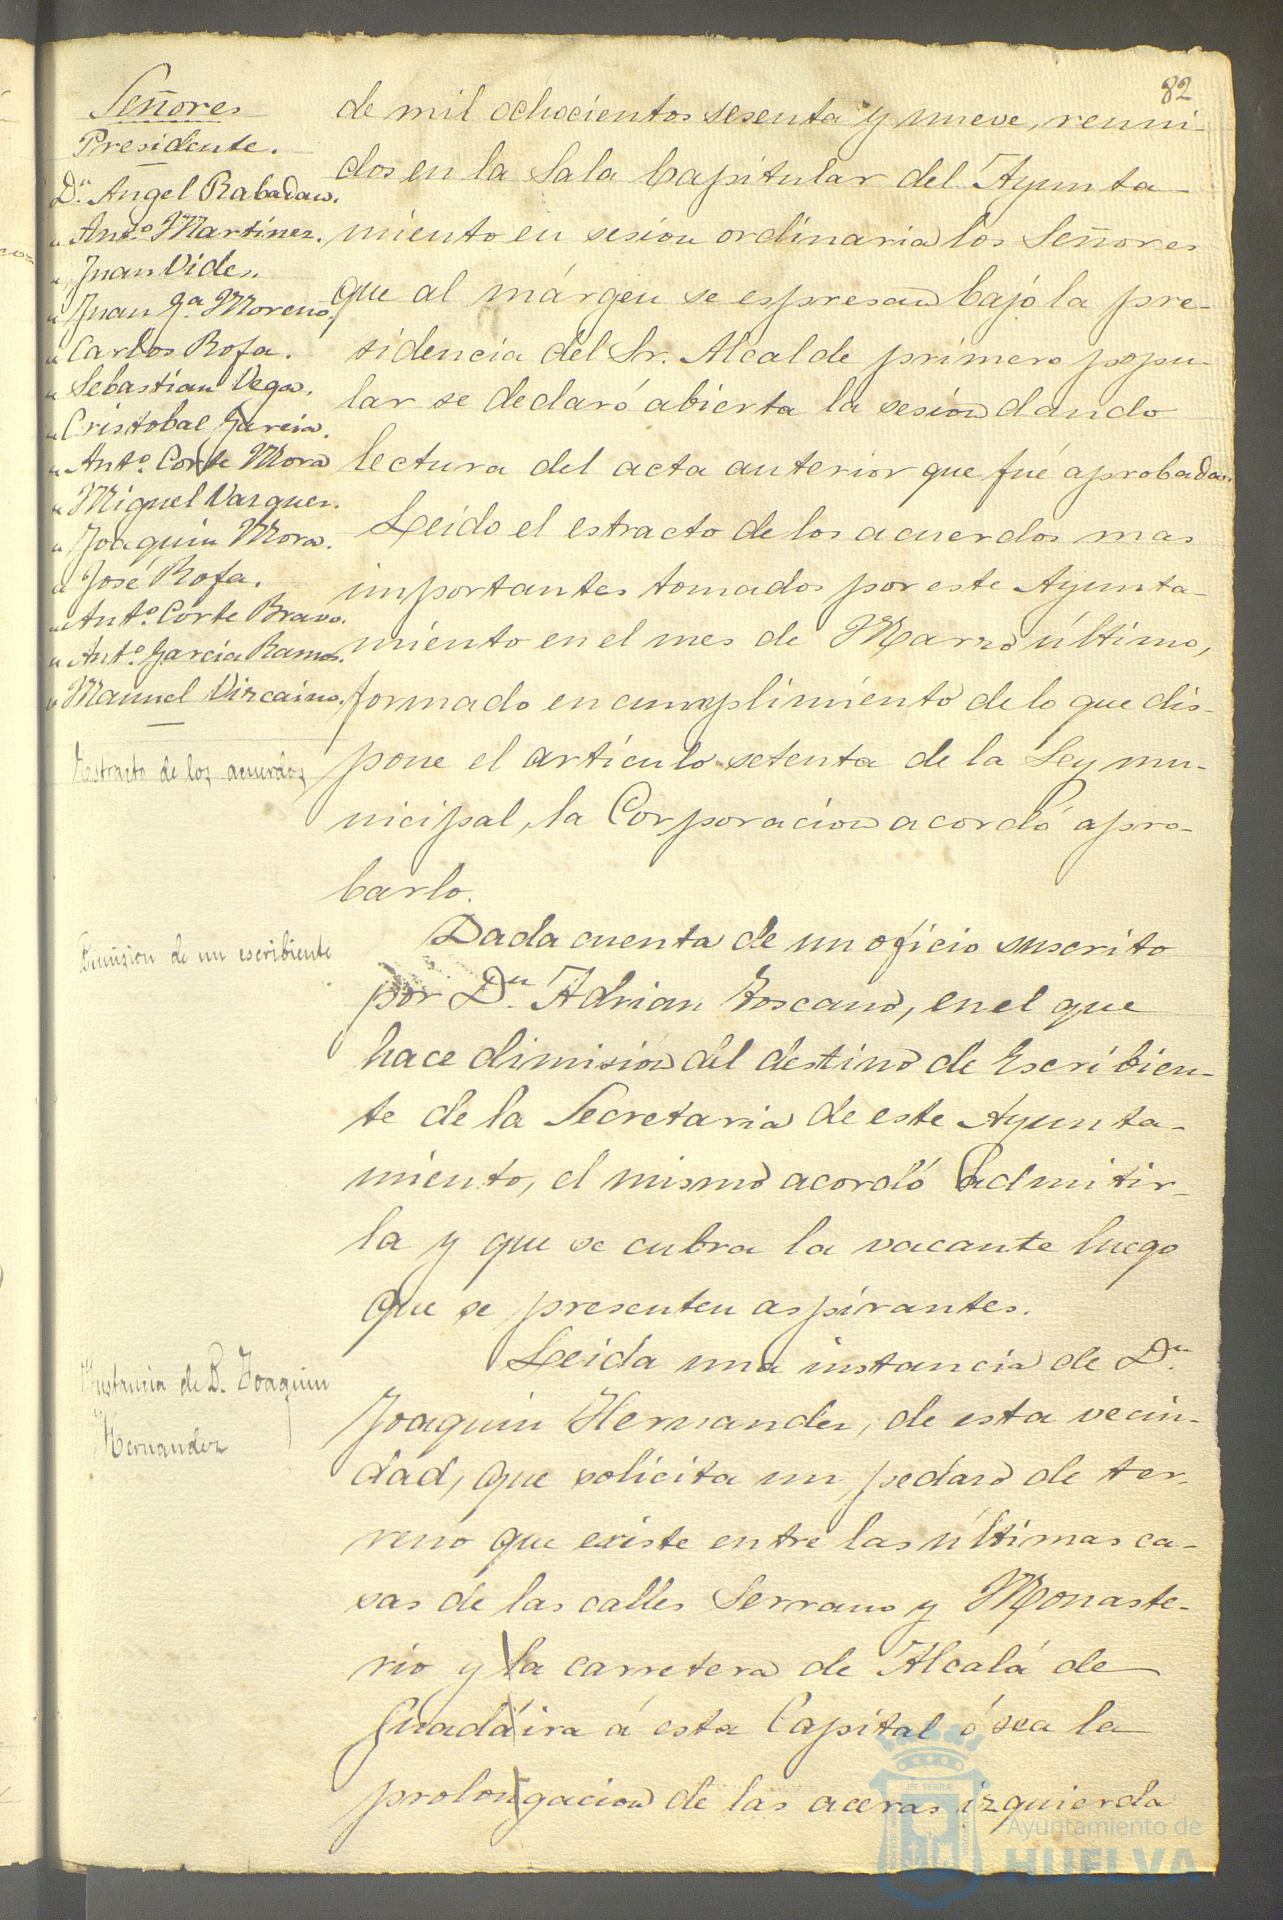 82
Señores
Presidente.
Dn. Angel Rabadan.
" Anto. Martinez.
" Juan Vides.
" Juan Ga. Moreno.
" Carlos Rofa.
" Sebastian Vega.
" Cristobal Garcia.
" Anto. Corte Mora
" Miguel Vazquez.
" Joaquin Mora.
" José Rofa.
" Anto. Corte Bravo.
" Anto. Garcia Ramos.
" Manuel Vizcaino.
Estracto de los acuerdos
Dimision de un escribiente
Instancia de D. Joaquin
Hernandez
de mil ochocientos sesenta y nueve, reuni-
dos en la Sala Capitular del Ayunta-
miento en sesion ordinaria los Señores
que al márgen se espresan bajo la pre-
sidencia del Sr. Alcalde primero popu-
lar se declaró abierta la sesion dando
lectura del acta anterior que fué aprobada.
Leido el estracto de los acuerdos mas
importantes tomados por este Ayunta-
miento en el mes de Marzo último,
formado en cumplimiento de lo que dis-
pone el artículo setenta de la Ley mu-
nicipal, la Corporacion acordó apro-
barlo.
Dada cuenta de un oficio suscrito
por Dn. Adrian Toscano, en el que
hace dimision del destino de Escribien-
te de la Secretaria de este Ayunta-
miento, el mismo acordó admitir-
la y que se cubra la vacante luego
que se presenten aspirantes.
Leida una instancia de Dn.
Joaquin Hernandez, de esta vecin-
dad, que solicita un pedazo de ter-
reno que existe entre las últimas ca-
sas de las calles Serrano y Monaste-
rio y la carretera de Alcalá de
Guadáira á esta Capital ó sea la
prolongacion de las aceras izquierda
Ayuntamiento de
HUELVA